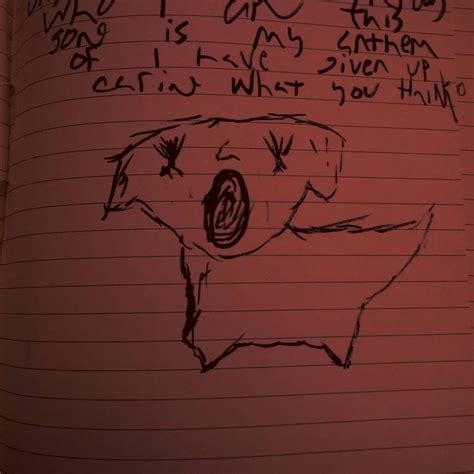 who I am
this
song is my anthem
of I have given up
carin what you think